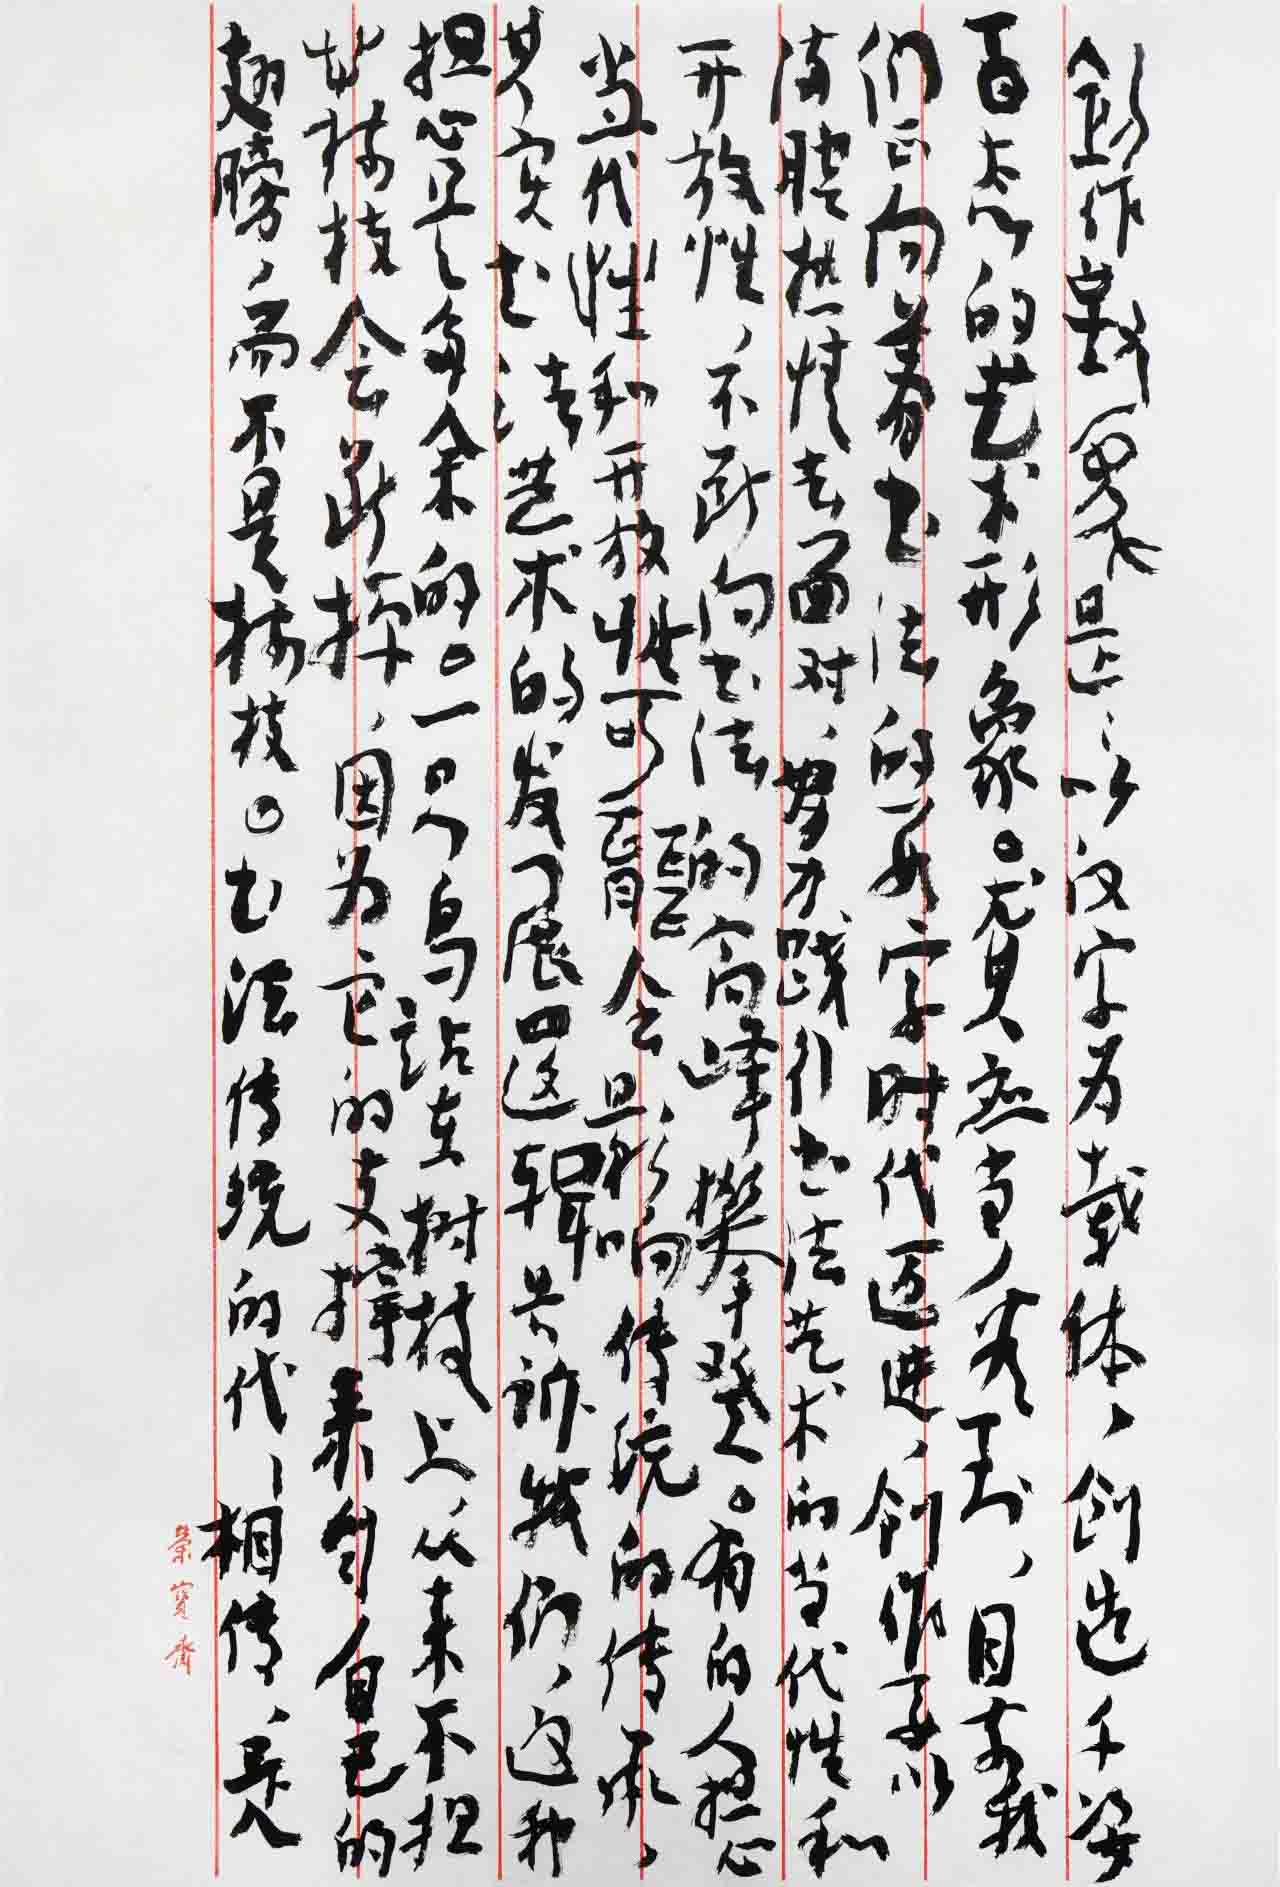 创作就是以汉字为载体，创造千姿
百态的艺术形象。我们应当看到，目前我
们正向着书法的数字时代迈进，创作要以
满腔热情去面对，努力践行书法艺术的当代性和
开放性，不断向书法的高峰攀登。有的人担心
当代性和开放性可能会影响传统的传承，
其实书法艺术的发展逻辑告诉我们，这种
担心是多余的。一只鸟站在树枝上从来不担
心树枝会断掉，因为它的支撑来自自己的
翅膀，而不是树枝。书法传统的代代相传，是
荣宝斋